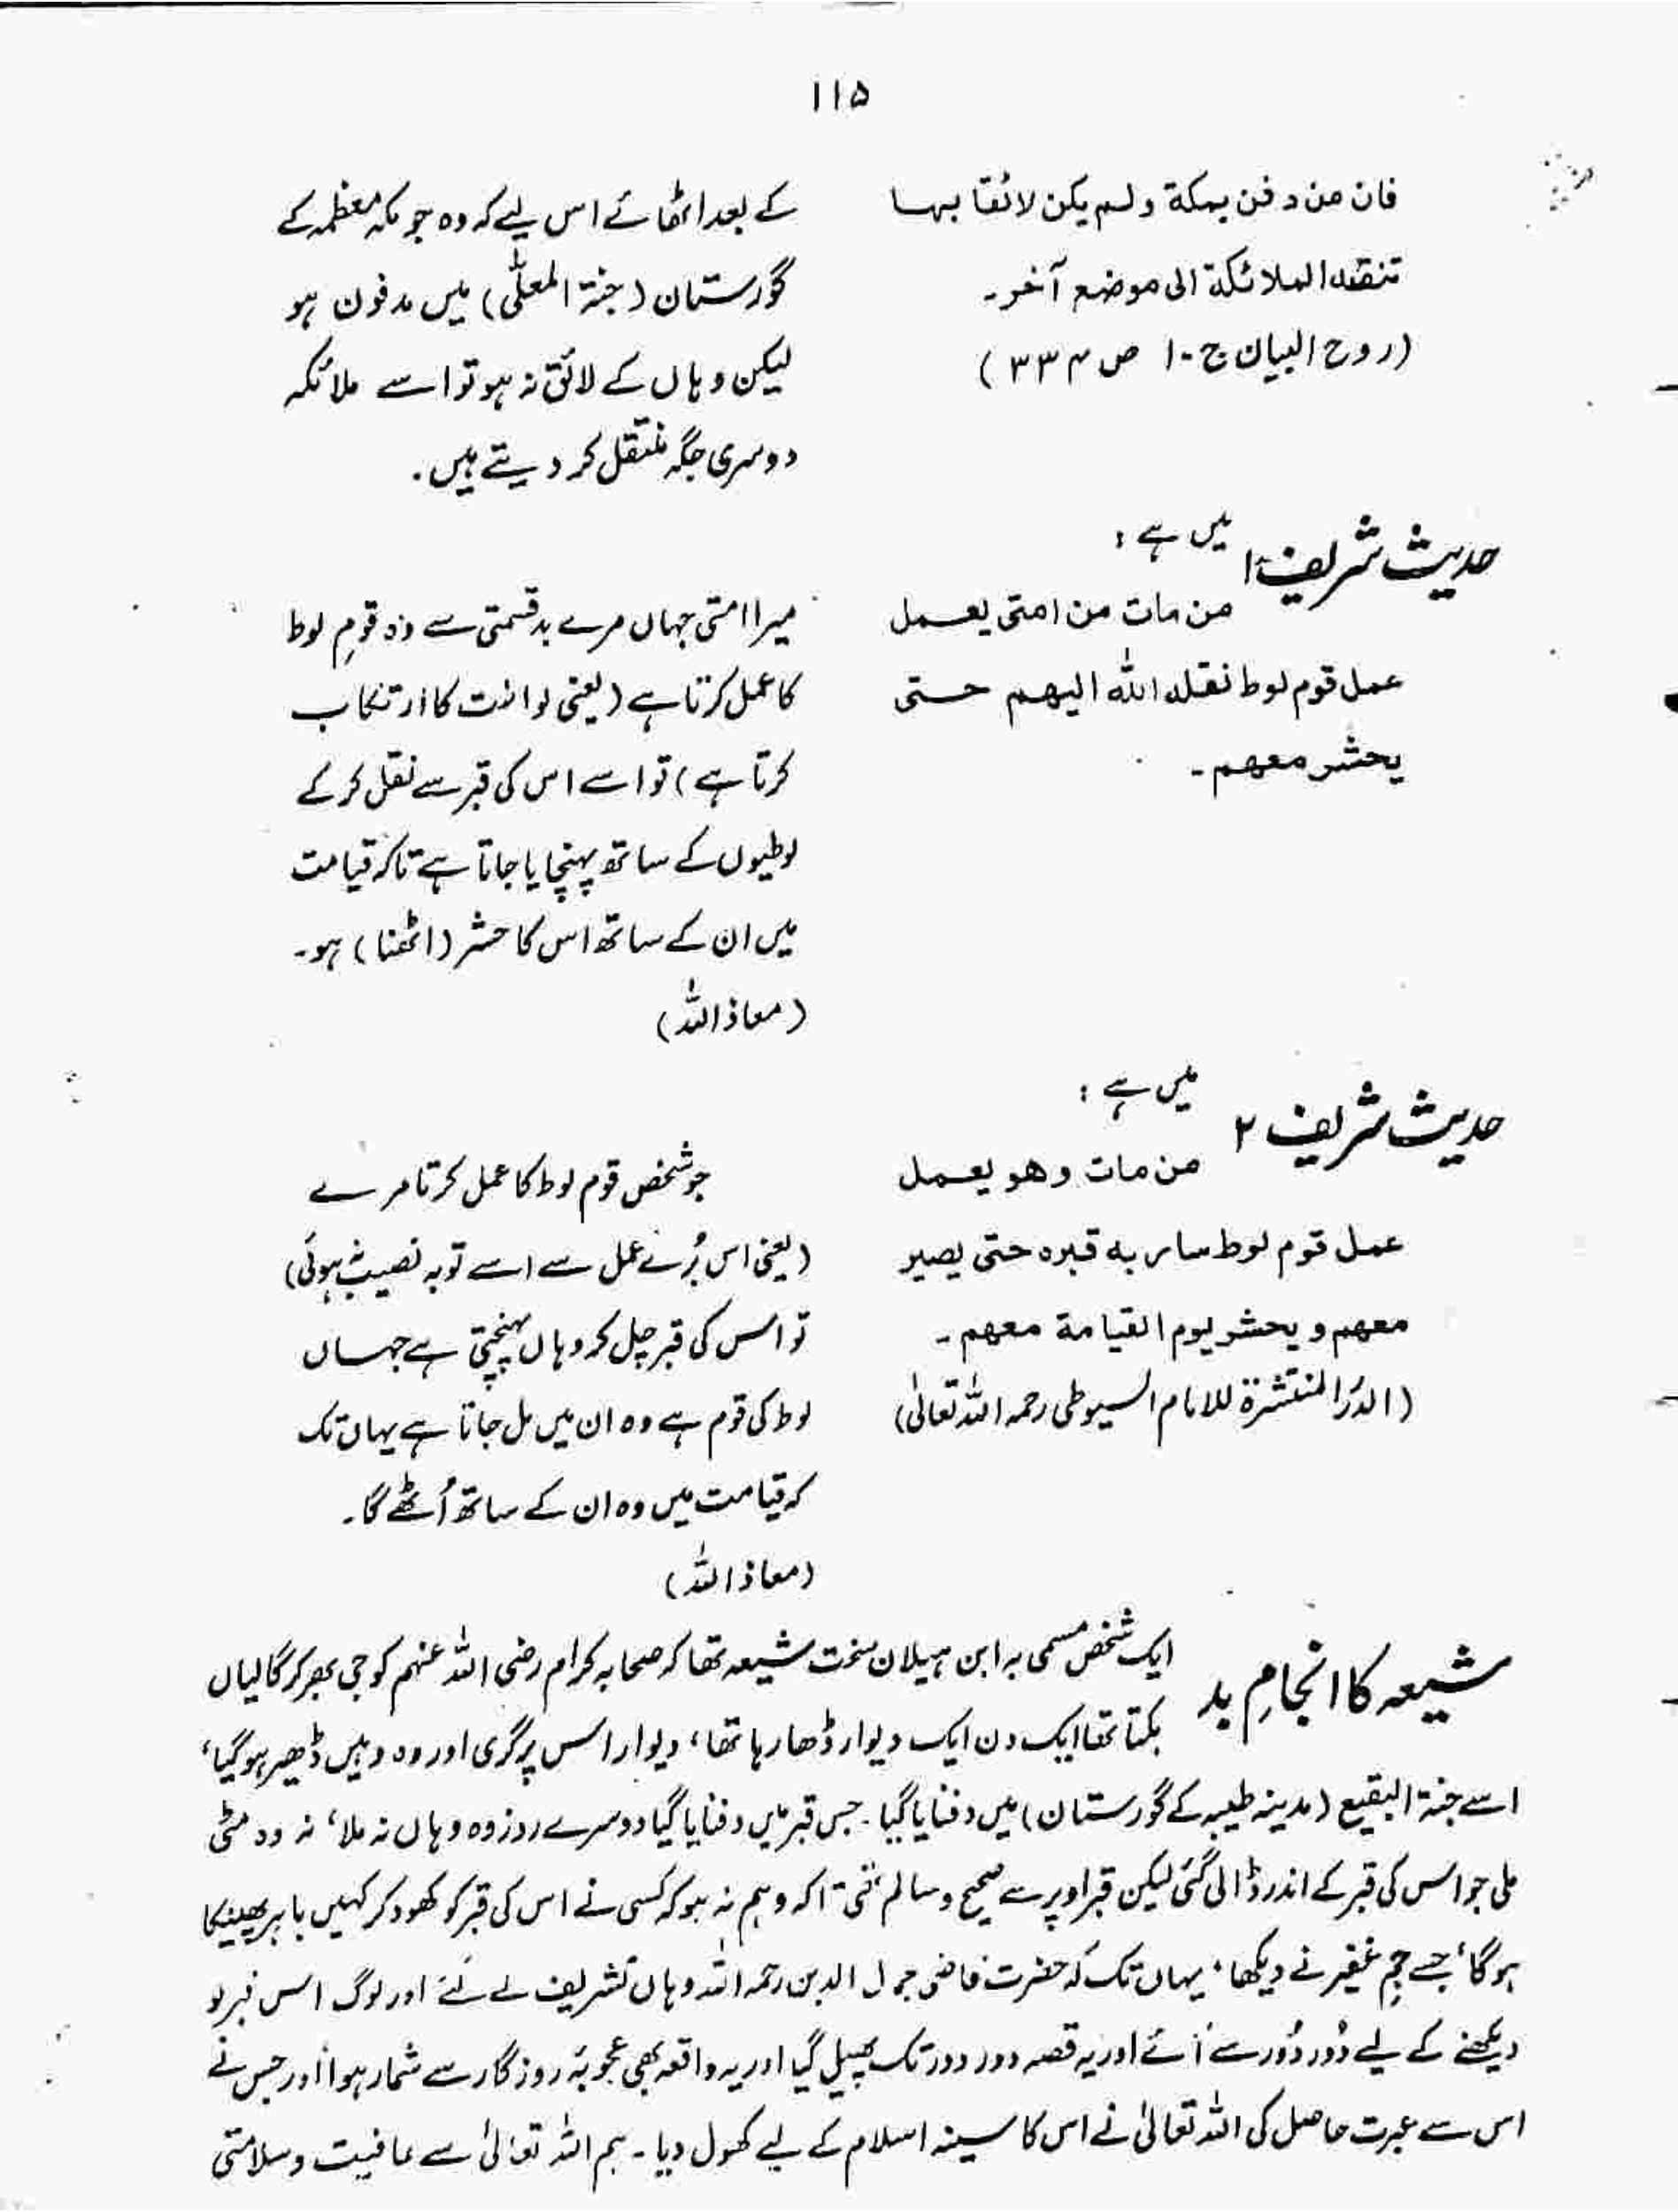 ۱۱۵
فان من دفن بمكة ولم يكن لائقا بها
تنقله الملائكة الى موضع آخر۔
(روح البیان ج ۱۰ ص ۳۳۴)
کے بعد اٹھائے اس لیے کہ وہ جو مکہ معظمہ کے
گورستان (جنۃ المعلّٰی) میں مدفون ہو
لیکن وہاں کے لائق نہ ہو تو اسے ملائکہ
دوسری جگہ منتقل کر دیتے ہیں۔
حدیث شریف ۱ میں ہے:
من مات من امتی یعمل
عمل قوم لوط نقله اللّٰه الیهم حتی
یحشر معهم۔
میرا امتی جہاں مرے بدقسمتی سے وہ قومِ لوط
کا عمل کرتا ہے (یعنی لواطت کا ارتکاب
کرتا ہے) تو اسے اس کی قبر سے نقل کر کے
لوطیوں کے ساتھ پہنچایا جاتا ہے تاکہ قیامت
میں ان کے ساتھ اس کا حشر (اٹھنا) ہو۔
(معاذ اللّٰہ)
حدیث شریف ۲ میں ہے:
من مات وهو یعمل
عمل قوم لوط سار به قبره حتی یصیر
معهم و یحشر یوم القیامة معهم۔
(الدرّ المنتشرۃ للامام السیوطی رحمہ اللّٰہ تعالٰی)
جو شخص قوم لوط کا عمل کرتا مرے
(یعنی اس بُرے عمل سے اسے توبہ نصیب نہ ہوئی)
تو اس کی قبر چل کر وہاں پہنچتی ہے جہاں
لوط کی قوم ہے وہ ان میں مل جاتا ہے یہاں تک
کہ قیامت میں وہ ان کے ساتھ اُٹھے گا۔
(معاذ اللّٰہ)
شیعہ کا انجامِ بد ایک شخص مسمی بہ ابن ہیلان سخت شیعہ تھا کہ صحابہ کرام رضی اللّٰہ عنہم کو جی بھر کر گالیاں
بکتا تھا ایک دن ایک دیوار ڈھا رہا تھا، دیوار اس پر گری اور وہ وہیں ڈھیر ہو گیا،
اسے جنۃ البقیع (مدینہ طیبہ کے گورستان) میں دفنایا گیا۔ جس قبر میں دفنایا گیا دوسرے روز وہ وہاں نہ ملا، نہ وہ مٹی
ملی جو اس کی قبر کے اندر ڈالی گئی لیکن قبر اوپر سے صحیح و سالم تھی تاکہ وہم نہ ہو کہ کسی نے اس کی قبر کو کھود کر کہیں باہر پھینکا
ہوگا، جسے جمِ غفیر نے دیکھا، یہاں تک کہ حضرت قاضی جمال الدین رحمہ اللّٰہ وہاں تشریف لے گئے اور لوگ اس قبر کو
دیکھنے کے لیے دُور دُور سے آئے اور یہ قصہ دور دور تک پھیل گیا اور یہ واقعہ بھی عجوبۂ روزگار سے شمار ہوا اور جس نے
اس سے عبرت حاصل کی اللّٰہ تعالیٰ نے اس کا سینہ اسلام کے لیے کھول دیا۔ ہم اللّٰہ تعالیٰ سے عافیت و سلامتی